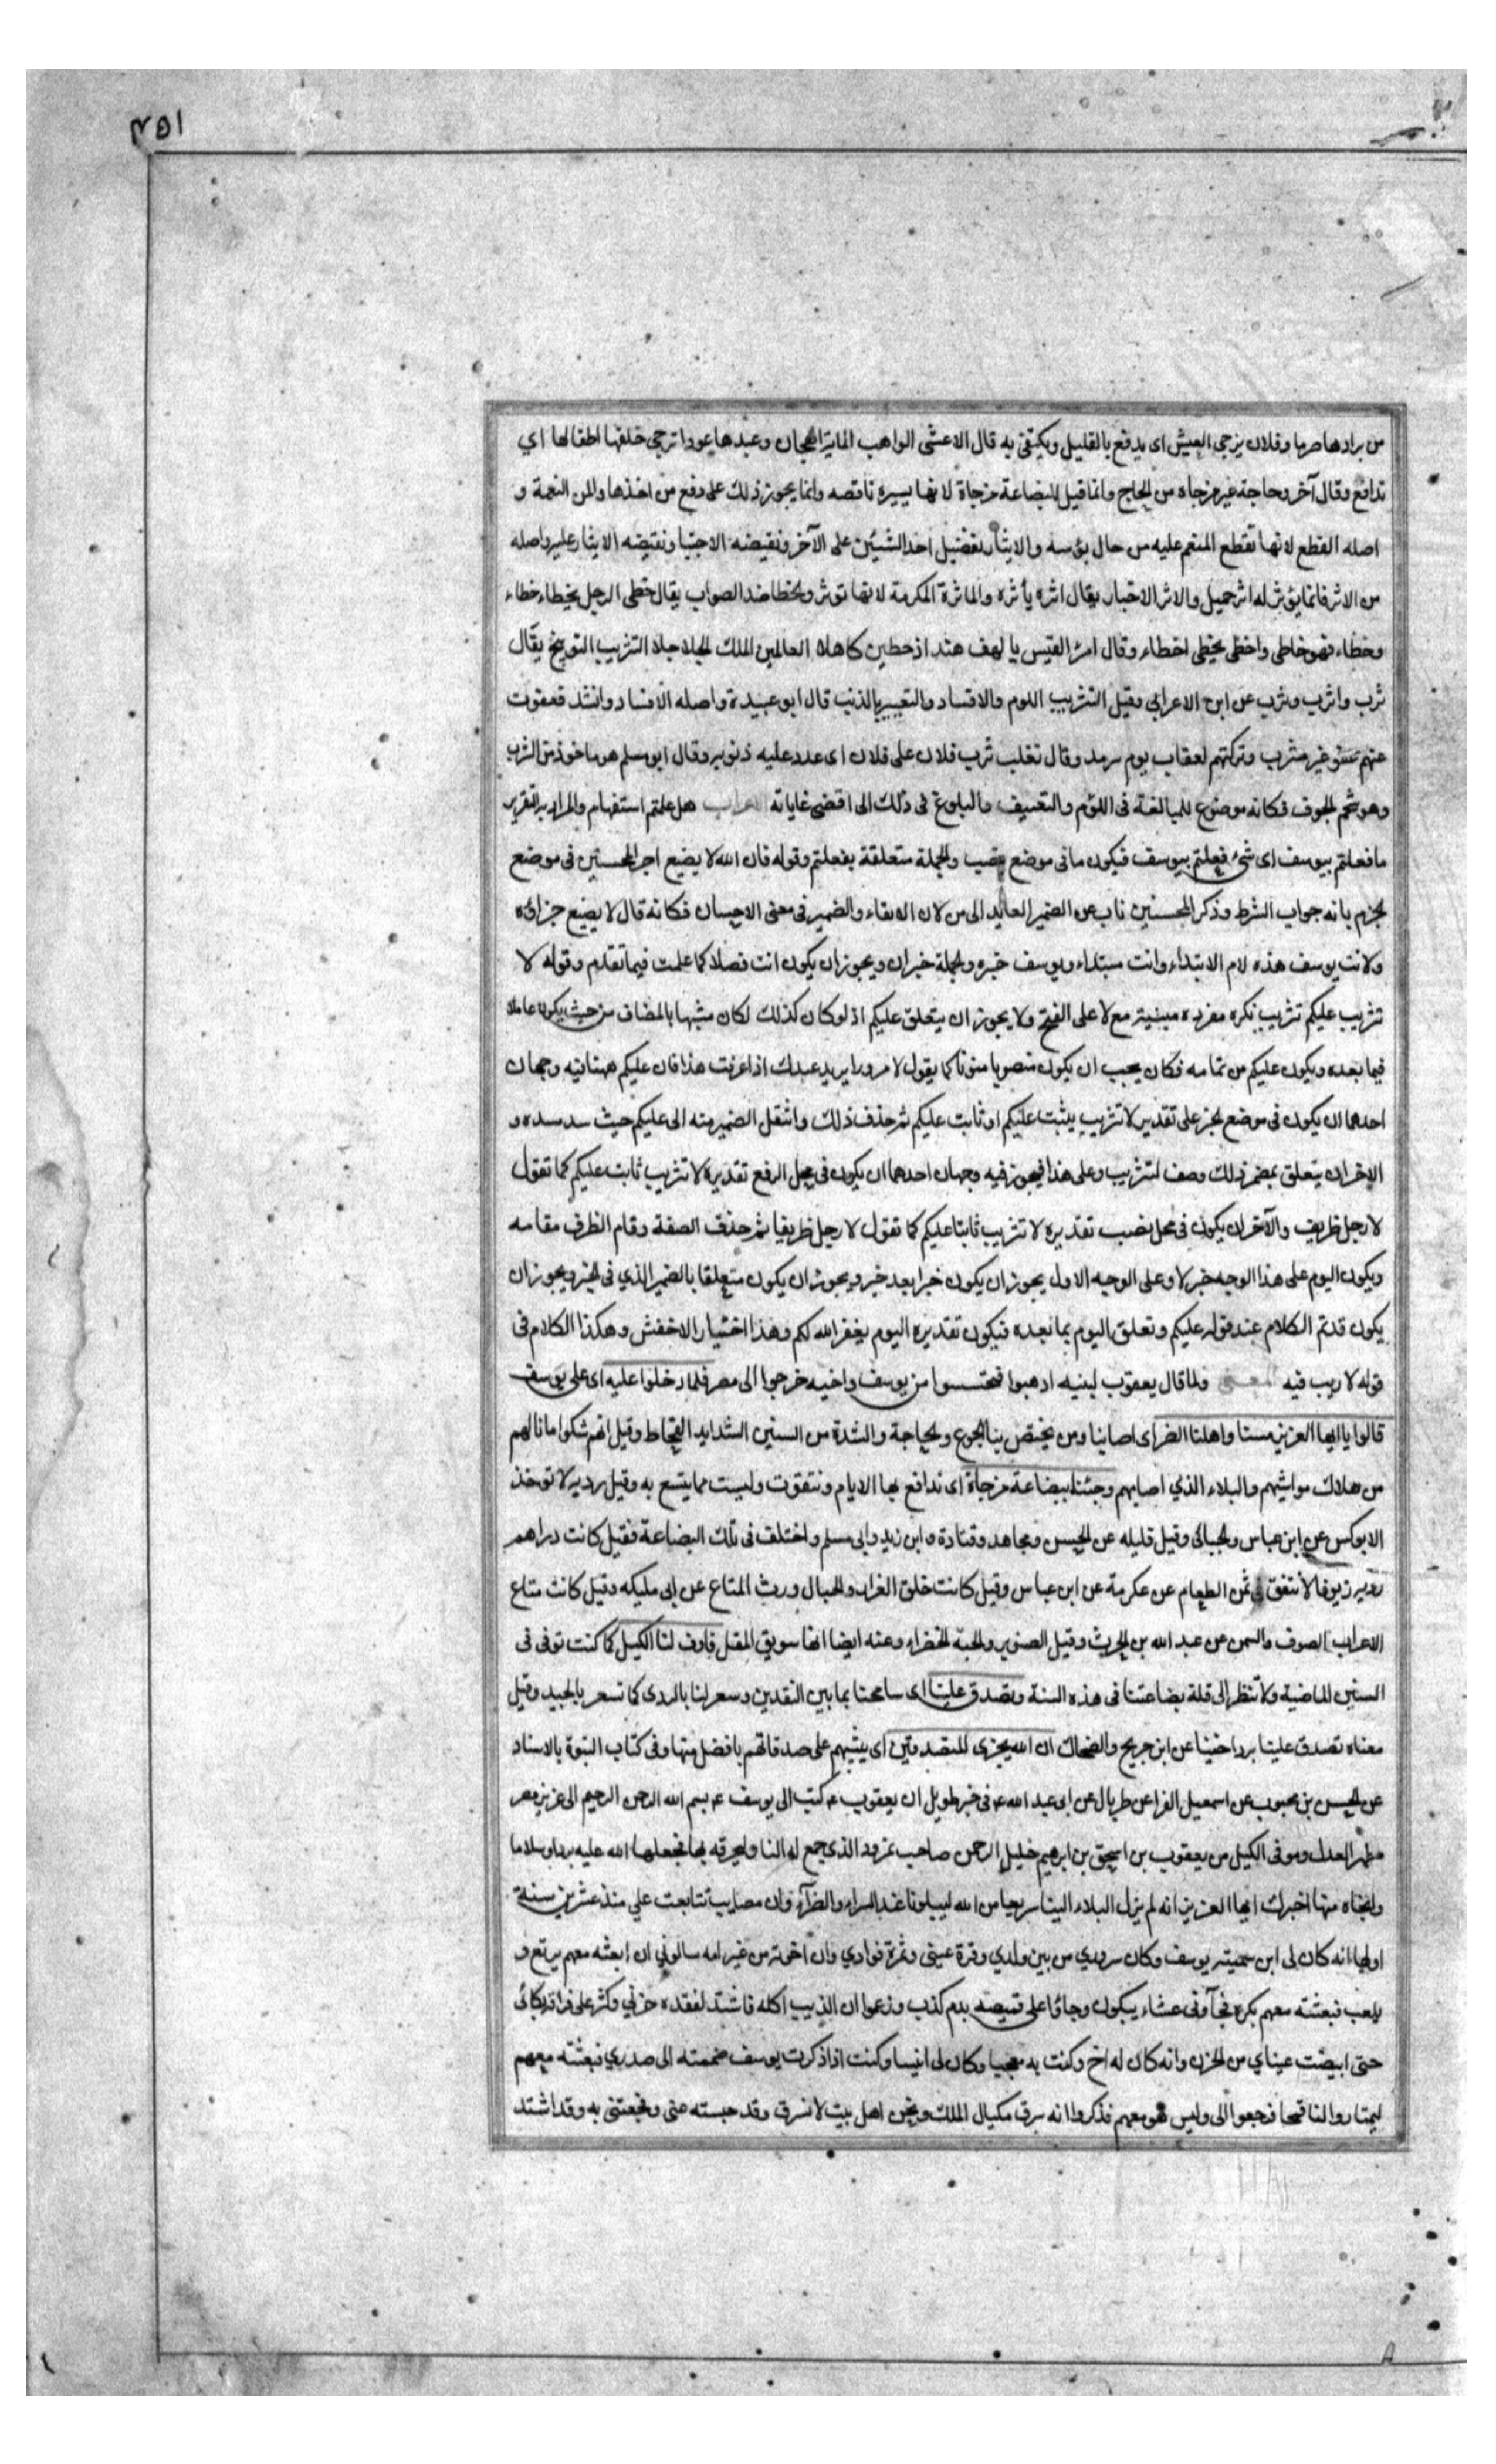 ٤٥١
من برادها صرما وفلان يزجى العيش اى يدفع بالقليل ويكتفى به قال الاعشى الواهب الماية الهجان وعبدها عودا تزجى خلفها اطفالها اي
تدافع وقال آخر وحاجة غير مزجاه من الحاج وانما قيل للبضاعة مزجاة لانها يسيره ناقصه وانما يجوز ذلك على دفع من اخذها والمن النعمة و
اصله القطع لانها تقطع المنعم عليه من حال بؤسه والايثار تفضيل احد الشيئين على الآخر ونقيضه الاجتبا ونقيضه الايثار عليه واصله
من الاثر فانما يؤثر له اثر جميل والاثر الاخبار يقال اثره يأثره والماثرة المكرمة لانها توثر والخطا ضد الصواب يقال خطى الرجل يخطاء خطاء
وخطاء فهو خاطى واخطى يخطى اخطاء وقال امرؤ القيس يا لهف هند اذ خطين كاهلا العالمين الملك الحلاحلا التثريب التوبيخ يقال
ثرب واثرب وثرب عن ابن الاعرابي وقيل التثريب اللوم والافساد والتعيير بالذنب قال ابو عبيدة واصله الافساد وانشد فعفوت
عنهم عفو غير مثرب وتركتهم لعقاب يوم سرمد وقال تغلب ثرب فلان على فلان اى عدد عليه ذنوبه وقال ابو مسلم هو ماخوذ من الثرب
وهو شحم الجوف فكانه موضوع للمبالغة فى اللوم والتعنيف والبلوغ فى ذلك الى اقصى غاياته الاعراب هل علمتم استفهام والمراد به التقرير
ما فعلتم بيوسف اى شئ فعلتم بيوسف فيكون ما فى موضع نصب والجملة متعلقة بفعلتم وقوله فان الله لا يضيع اجر المحسنين فى موضع
الجزم بانه جواب الشرط وذكر المحسنين ناب عن الضمير العايد الى من لان الاتقاء والضمير فى معنى الاحسان فكانه قال لا يضيع جزاؤه
ولانت يوسف هذه لام الابتداء وانت مبتداء ويوسف خبره والجملة خبر ان ويجوز ان يكون انت فصلا كما علمت فيما تقدم وقوله لا
تثريب عليكم تثريب نكره مفرده مبنية مع لا على الفتح ولا يجوز ان يتعلق عليكم اذ لو كان كذلك لكان مشبها بالمضاف من حيث يكون عاملا
فيما بعده ويكون عليكم من تمامه فكان يجب ان يكون منصوبا منونا كما يقول لا مرورا بزيد عندك اذا عرفت هذا فان عليكم هنا فيه وجهان
احدهما ان يكون فى موضع الخبر على تقدير لا تثريب يثبت عليكم او ثابت عليكم ثم حذف ذلك وانتقل الضمير منه الى عليكم حيث سد سده و
الاخر ان يتعلق بمضمر ذلك وصف لتثريب وعلى هذا فيجوز فيه وجهان احدهما ان يكون فى محل الرفع تقديره لا تثريب ثابت عليكم كما تقول
لا رجل ظريف والآخر ان يكون فى محل نصب تقديره لا تثريب ثابتا عليكم كما تقول لا رجل ظريفا ثم حذف الصفة وقام الظرف مقامه
ويكون اليوم على هذا الوجه خبر لا وعلى الوجه الاول يجوز ان يكون خبرا بعد خبر ويجوز ان يكون متعلقا بالضمير الذي فى الخبر ويجوز ان
يكون قد تم الكلام عند قوله عليكم وتعلق اليوم بما بعده فيكون تقديره اليوم يغفر الله لكم وهذا اختيار الاخفش وهكذا الكلام فى
قوله لا ريب فيه المعنى ولما قال يعقوب لبنيه اذهبوا فتحسسوا من يوسف واخيه خرجوا الى مصر فلما دخلوا عليه اى على يوسف
قالوا يا ايها العزيز مسنا واهلنا الضر اى اصابنا ومن يختص بنا الجوع والحاجة والشدة من السنين الشدايد القحاط وقيل انهم شكوا ما نالهم
من هلاك مواشيهم والبلاء الذي اصابهم وجئنا ببضاعة مزجاة اى ندافع بها الايام ونتقوت وليست مما يتسع به وقيل رديه لا توخذ
الا بوكس عن ابن عباس والجبائي وقيل قليله عن الحسن ومجاهد وقتادة وابن زيد وابى مسلم واختلف فى تلك البضاعة فقيل كانت دراهم
رديه زيوفا لا تنفق فى ثمن الطعام عن عكرمة عن ابن عباس وقيل كانت خلق الغرار والحبال ورث المتاع عن ابى مليكه وقيل كانت متاع
الاعراب الصوف والسمن عن عبد الله بن الحرث وقيل الصنوبر والحبة الخضراء وعنه ايضا انها سويق المقل فاوف لنا الكيل كما كنت توفى فى
السنين الماضية ولا تنظر الى قلة بضاعتنا فى هذه السنة وتصدق علينا اى سامحنا بما بين النقدين وسعر لنا بالردى كما تسعر بالجيد وقيل
معناه تصدق علينا برد اخينا عن ابن جريج والضحاك ان الله يجزى المتصدقين اى يثيبهم على صدقاتهم بافضل منها وفى كتاب النبوة بالاسناد
عن الحسن بن محبوب عن اسمعيل الفرا عن طربال عن ابى عبد الله ع فى خبر طويل ان يعقوب ع كتب الى يوسف ع بسم الله الرحمن الرحيم الى عزيز مصر
مظهر العدل وموفى الكيل من يعقوب بن اسحق بن ابرهيم خليل الرحمن صاحب نمرود الذى جمع له النار ليحرقه بها فجعلها الله عليه بردا وسلاما
وانجاه منها اخبرك ايها العزيز انه لم يزل البلاء الينا سريعا من الله ليبلونا عند السراء والضرآء وان مصايب تتابعت علي منذ عشرين سنة
اولها انه كان لى ابن سميته يوسف وكان سروري من بين ولدي وقرة عينى وثمرة فوادي وان اخوته من غير امه سالوني ان ابعثه معهم يرتع و
يلعب فبعثته معهم بكره فجآونى عشاء يبكون وجاؤا على قميصه بدم كذب وزعموا ان الذيب اكله فاشتد لفقده حزني وكثر على فراقه بكائى
حتى ابيضت عيناي من الحزن وانه كان له اخ وكنت به معجبا وكان لى انيسا وكنت اذا ذكرت يوسف ضممته الى صدري فبعثته معهم
ليمتاروا لنا قمحا فرجعوا الى وليس هو معهم فذكروا انه سرق مكيال الملك ونحن اهل بيت لا نسرق وقد حبسته عنى وفجعتنى به وقد اشتد